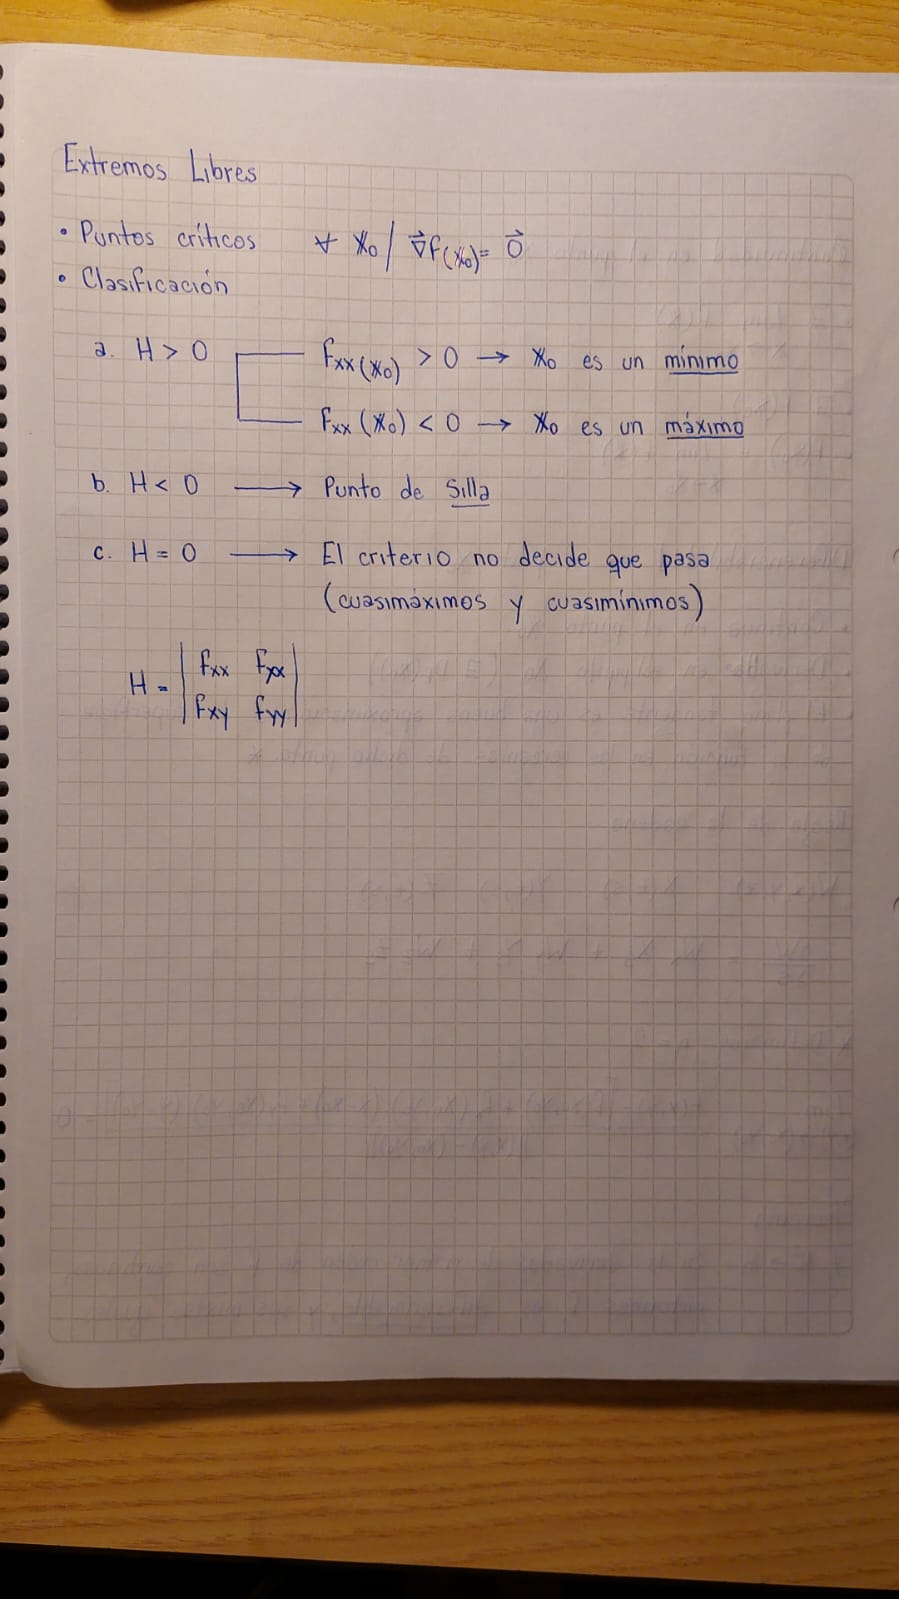 Extremos Libres
• Puntos críticos ∀ X₀ / ∇⃗f(X₀) = 0⃗
• Clasificación
a. H > 0 fxx(X₀) > 0 → X₀ es un mínimo
fxx(X₀) < 0 → X₀ es un máximo
b. H < 0 → Punto de Silla
c. H = 0 → El criterio no decide que pasa
(cuasimáximos y cuasimínimos)
H = | fxx fyx |
| fxy fyy |